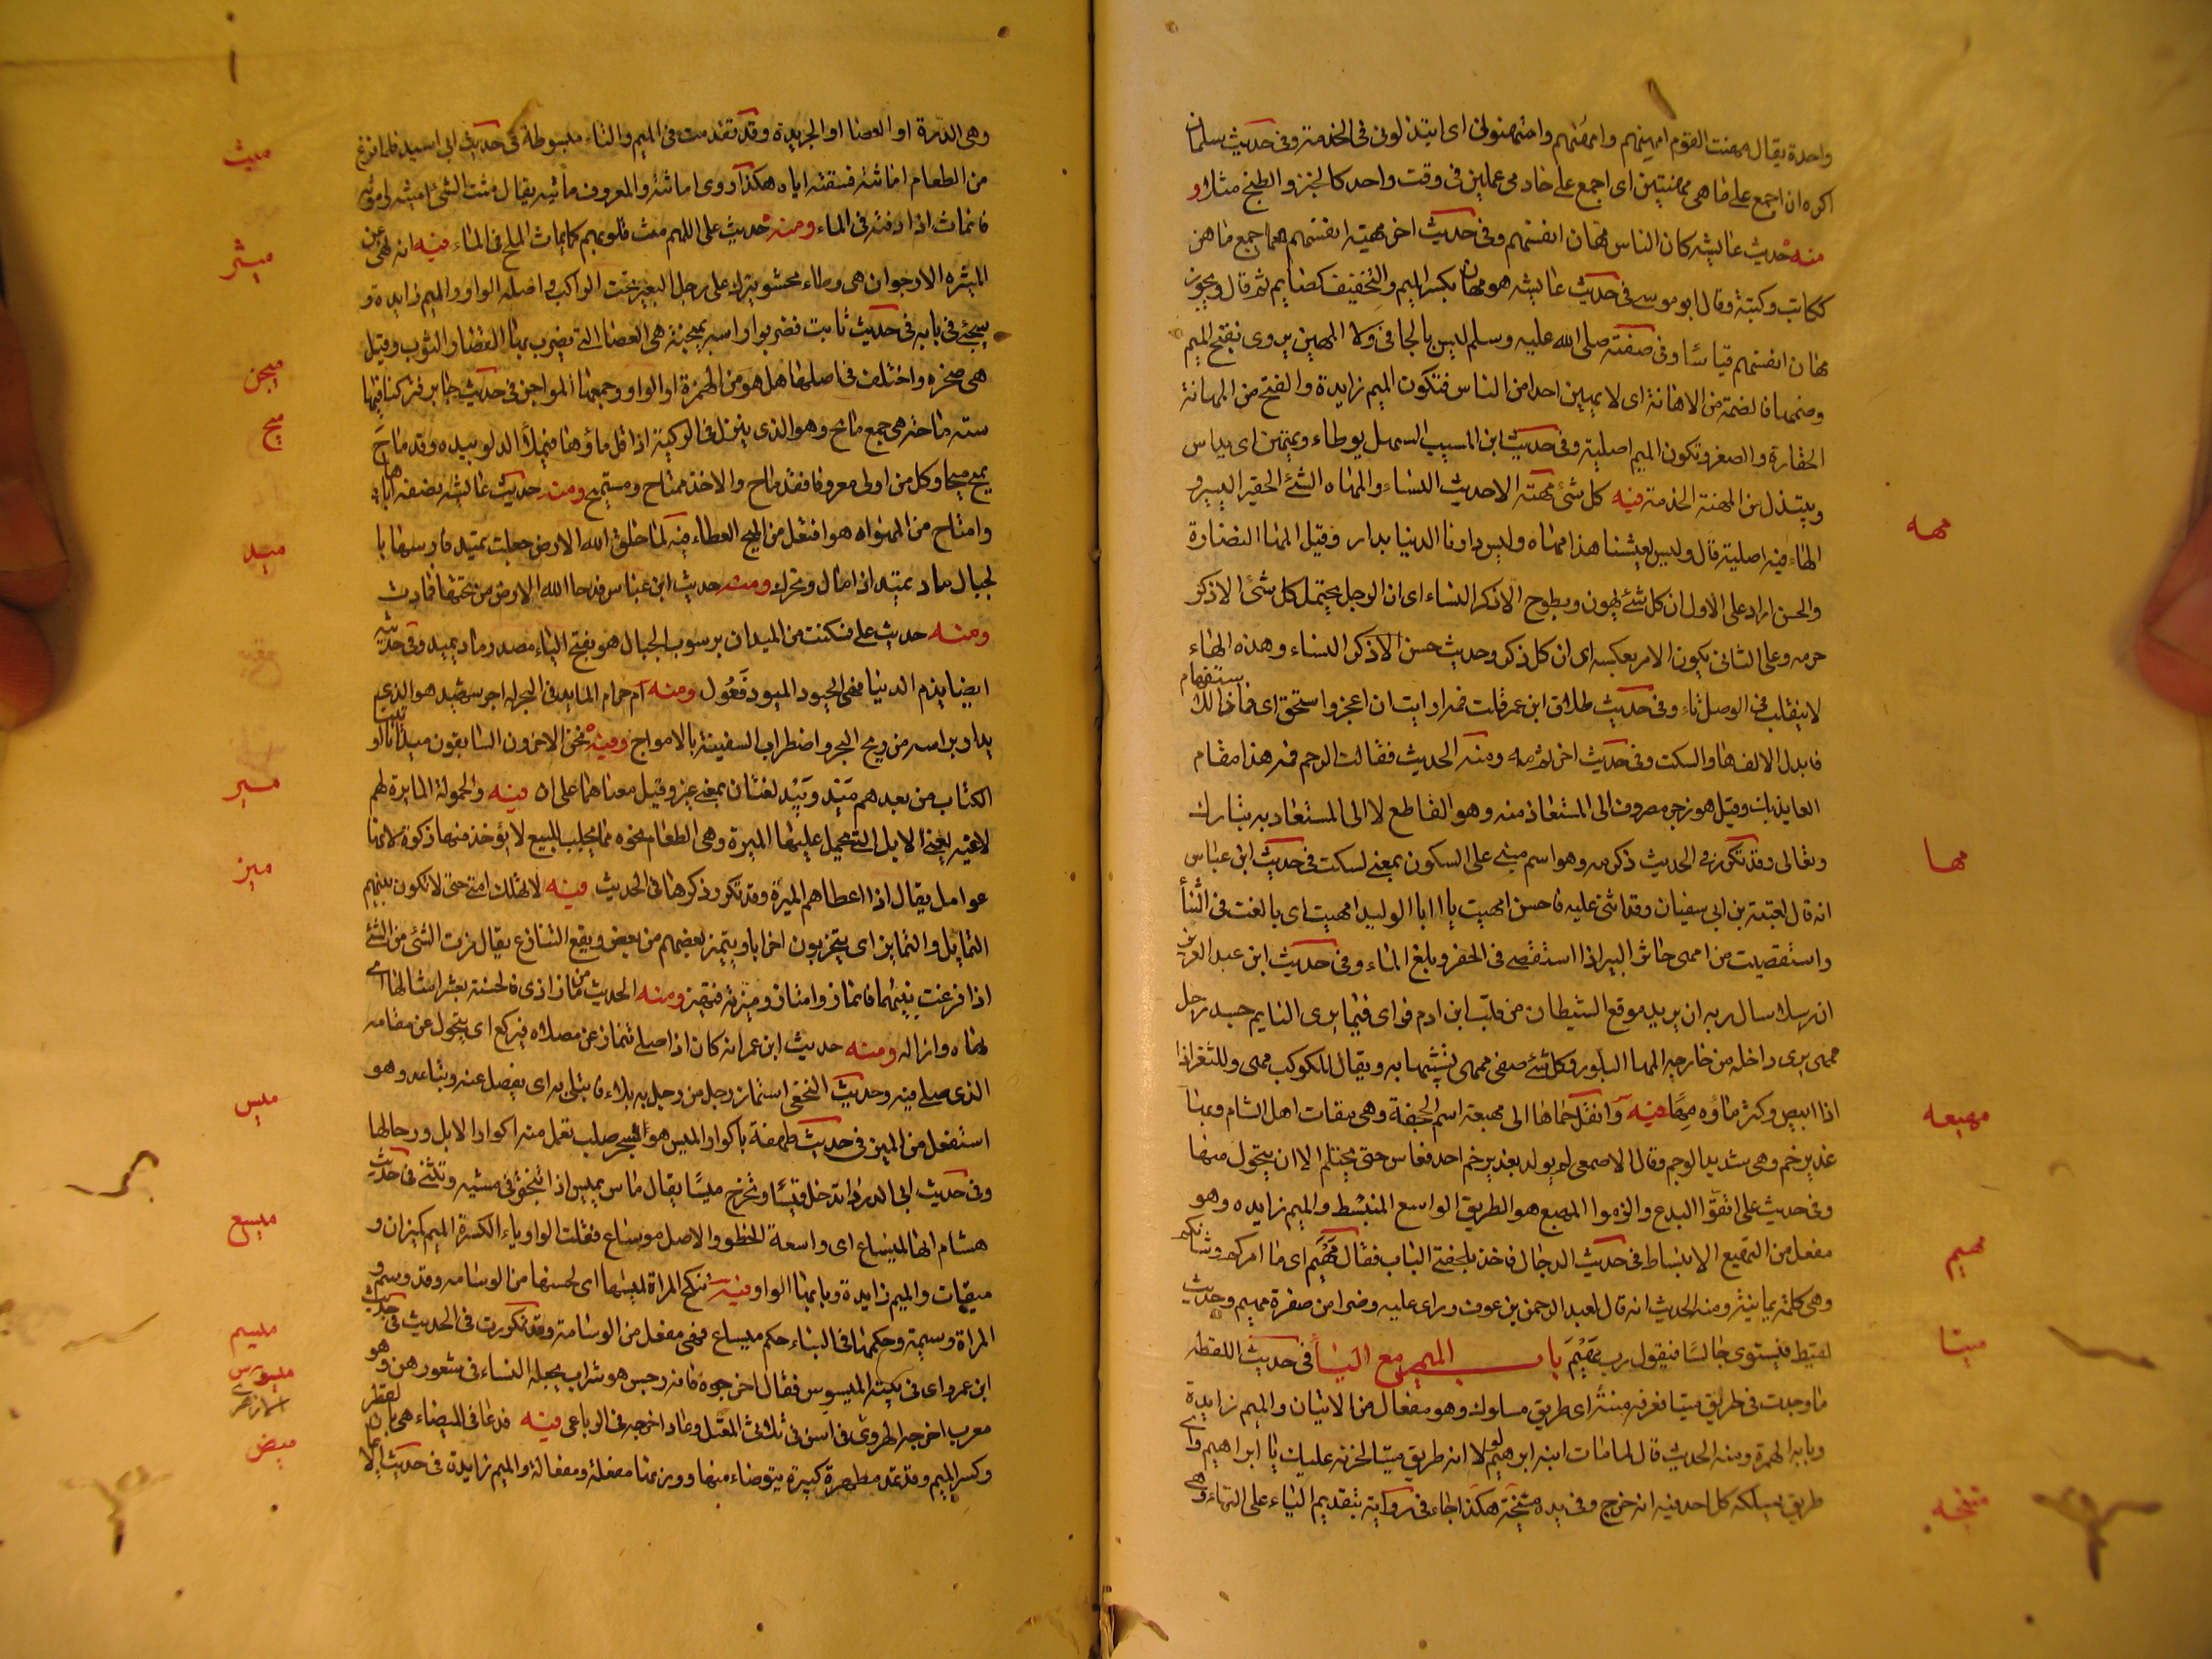 واحدة يقال مهنت القوم امهنهم وامهنهم وامتهنونى اى ابتذلونى فى الخدمة وفى حديث سلمان
اكره ان اجمع على ماهنى مهنتين اى اجمع على خادمى عملين فى وقت واحد كالخبز والطبخ مثلا و
منه حديث عايشه كان الناس مهان انفسهم وفى حديث اخر مهنة انفسهم هما جمع ماهن
ككاتب وكتبة وقال ابو موسى فى حديث عايشه هو مهان بكسر الميم والتخفيف كصايم ثم قال ويجوز
مهان انفسهم قياسا وفى صفته صلى الله عليه وسلم ليس بالجافى ولا المهين يروى بفتح الميم
وضمها فالضمة من الاهانة اى لا يهين احدا من الناس فتكون الميم زايدة والفتح من المهانة
الحقارة والصغر وتكون الميم اصلية وفى حديث ابن المسيب السهل يوطاء ويمتهن اى يداس
ويبتذل من المهنة الخدمة فيه كل شئ مهه الا حديث النساء والمهاه الشئ الحقير اليسير و
الهاء فيه اصلية قال وليس لعيشنا هذا مهاه وليس دارنا الدنيا بدار وقيل المهاه النضارة
والحسن اراد على الاول ان كل شئ يهون ويطرح الا ذكر النساء اى ان الرجل يحتمل كل شئ الا ذكر
حرمه وعلى الثانى يكون الامر بعكسه اى ان كل ذكر وحديث حسن الا ذكر النساء وهذه الهاء
لا ينقلب فى الوصل تاء وفى حديث طلاق ابن عمر قلت فمه ارايت ان اعجز واستحق اى فماذا للاستفهام
فابدل الالف هاء والسكت وفى حديث اخر ثم مه ومنه الحديث فقالت الرحم مه هذا مقام
العايذ بك وقيل هو زجر مصروف الى المستعاذ منه وهو القاطع لا الى المستعاذ به تبارك
وتعالى وقد تكرر فى الحديث ذكر مه وهو اسم مبنى على السكون بمعنى اسكت فى حديث ابن عباس
انه قال لعتبة بن ابى سفيان وقد اثنى عليه فاحسن امهيت يا ابا الوليد امهيت اى بالغت فى الثناء
واستقصيت من امهى حافر البير اذا استقصى فى الحفر وبلغ الماء وفى حديث ابن عبد العزيز
ان رجلا سال ربه ان يريه موقع الشيطان من قلب ابن ادم فراى فيما يرى النايم جسد رجل
ممهى يرى داخله من خارجه المها البلور وكل شئ صفى ممهى تشبيها به ويقال للكوكب مهى وللثغر اذا
اذا ابيض وكثر ماؤه مها فيه وانقل حماها الى مهيعة اسم الجحفة وهى ميقات اهل الشام وبها
غدير خم وهى شديد الوخم وقال الاصمعى لم يولد بغدير خم احد فعاش حتى يحتلم الا ان يتحول منها
وفى حديث على اتقوا البدع والزموا المهيع هو الطريق الواسع المنبسط والميم زايده وهو
مفعل من التهيع الانبساط فى حديث الدجال فاخذ بلجفتى الباب فقال مهيم اى ما امركم وشانكم
وهى كلمة يمانية ومنه الحديث انه قال لعبد الرحمن بن عوف وراى عليه وضرا من صفرة مهيم وحديث
لقيط فيستوى جالسا فيقول رب مهيم باب الميم مع الياء فى حديث اللقطه
ما وجدت فى طريق ميتا فعرفه سنة اى طريق مسلوك وهو مفعال من الاتيان والميم زايدة
وبابه الهمزة ومنه الحديث قال لما مات ابنه ابرهيم لولا انه طريق ميتا لحزنه عليك يا ابراهيم اى
طريق يسلكه كل احد فيه انه خرج وفى يده متيخة هكذا جاء فى رواية بتقديم الياء على التاء وهى
مهه
مها
مهيعه
مهيم
ميتا
متيخه
وهى الدرة او العصا او الجريدة وقد تقدمت فى الميم والتاء مبسوطة فى حديث ابى اسيد فلما فرغ
من الطعام اماثته فسقته اياه هكذا روى اماثته والمعروف ماثته يقال مثت الشئ اميثه واموثه
فانماث اذا دفته فى الماء ومنه حديث على اللهم مث قلوبهم كما يماث الملح فى الماء فيه انه نهى عن
الميثره الارجوان هى وطاء محشو يترك على رحل البعير تحت الراكب واصله الواو والميم زايدة و
سيجئ فى بابه فى حديث ثابت فضربوا راسه بميجنة هى العصا التى يضرب بها القصار الثوب وقيل
هى صخره واختلف فى اصلها هل هو من الهمزة او الواو وجمعها المواجن فى حديث جابر فنزلنا فيها
ستة ماحة هى جمع مائح وهو الذى ينزل فى الركية اذا قل ماؤها فيملأ الدلو بيده وقد ماح
يميح ميحا وكل من اولى معروفا فقد ماح والاخذ ممتاح ومستميح ومنه حديث عايشه تصف اباها
وامتاح من المهواه هو افتعل من الميح العطاء فيه لما خلق الله الارض جعلت تميد فارسها با
لجبال ماد يميد اذا مال وتحرك ومنه حديث ابن عباس فدحا الله الارض من تحتها فمادت
ومنه حديث على فسكنت من الميدان برسوب الجبال هو بفتح الياء مصدر ماد يميد وفى حديثه
ايضا يذم الدنيا فهى الحيود الميود فعول ومنه ام حرام المايد فى البحر له اجر شهيد هو الذى
يدار براسه من ريح البحر واضطراب السفينة بالامواج وفيه نحن الاخرون السابقون ميد انا اوتينا
الكتاب من بعدهم ميد وبيد لغتان بمعنى غير وقيل معناهما على ان فيه والحمولة المايرة لهم
لاغيه يعنى الابل التى تحمل عليها الميرة وهى الطعام ونحوه مما يجلب للبيع لا يؤخذ منها زكوة لانها
عوامل يقال اذا اعطاهم الميرة وقد تكرر ذكرها فى الحديث فيه لا تهلك امتى حتى لا تكون بينهم
التمايل والتمايز اى يتحزبون احزابا ويتميز بعضهم من بعض ويقع التنازع يقال مزت الشئ من الشئ
اذا فرقت بينهما فانماز وامتاز وميزته فتميز ومنه الحديث من ماز اذى فالحسنة بعشر امثالها اى
نحاه وازاله ومنه حديث ابن عمر انه كان اذا صلى ينماز عن مصلاه فيركع اى يتحول عن مقامه
الذى صلى فيه وحديث النخعى استماز رجل من رجل به بلاء فابتلى به اى يفصل عنه ويتباعد وهو
استفعل من الميز فى حديث طهفة باكوار الميس هو شجر صلب تعمل منه اكوار الابل ورحالها
وفى حديث ابى الدرداء تدخل قيسا وتخرج ميسا يقال ماس يميس اذا تبختر فى مشيه وتثنى فى حديث
هشام انها لميساع اى واسعة الخطو والاصل موساع فقلبت الواو ياء لكسرة الميم كميزان و
ميقات والميم زايدة وبابها الواو فيه تنكح المراة لميسمها اى لحسنها من الوسامه وقد وسم و
المراة وسيمة وحكمها فى البناء حكم ميساع فهى مفعل من الوسامة وقد تكررت فى الحديث فى حديث
ابن عمر راى فى بيته الميسوس فقال اخرجوه فانه رجس هو شراب يجعله النساء فى شعورهن وهو
معرب اخرجه الهروى فى اسن فى ثلاثى المعتل وعاد اخرجه فى الرباعى فيه فدعا فى الميضاء هى بالقصر
وكسر الميم وقد تمد مطهرة كبيرة يتوضاء منها ووزنها مفعلة ومفعالة والميم زايدة فى حديث
ميث
ميثر
ميجن
ميح
ميد
مير
ميز
ميس
ميسع
ميسم
ميسوس
ميض